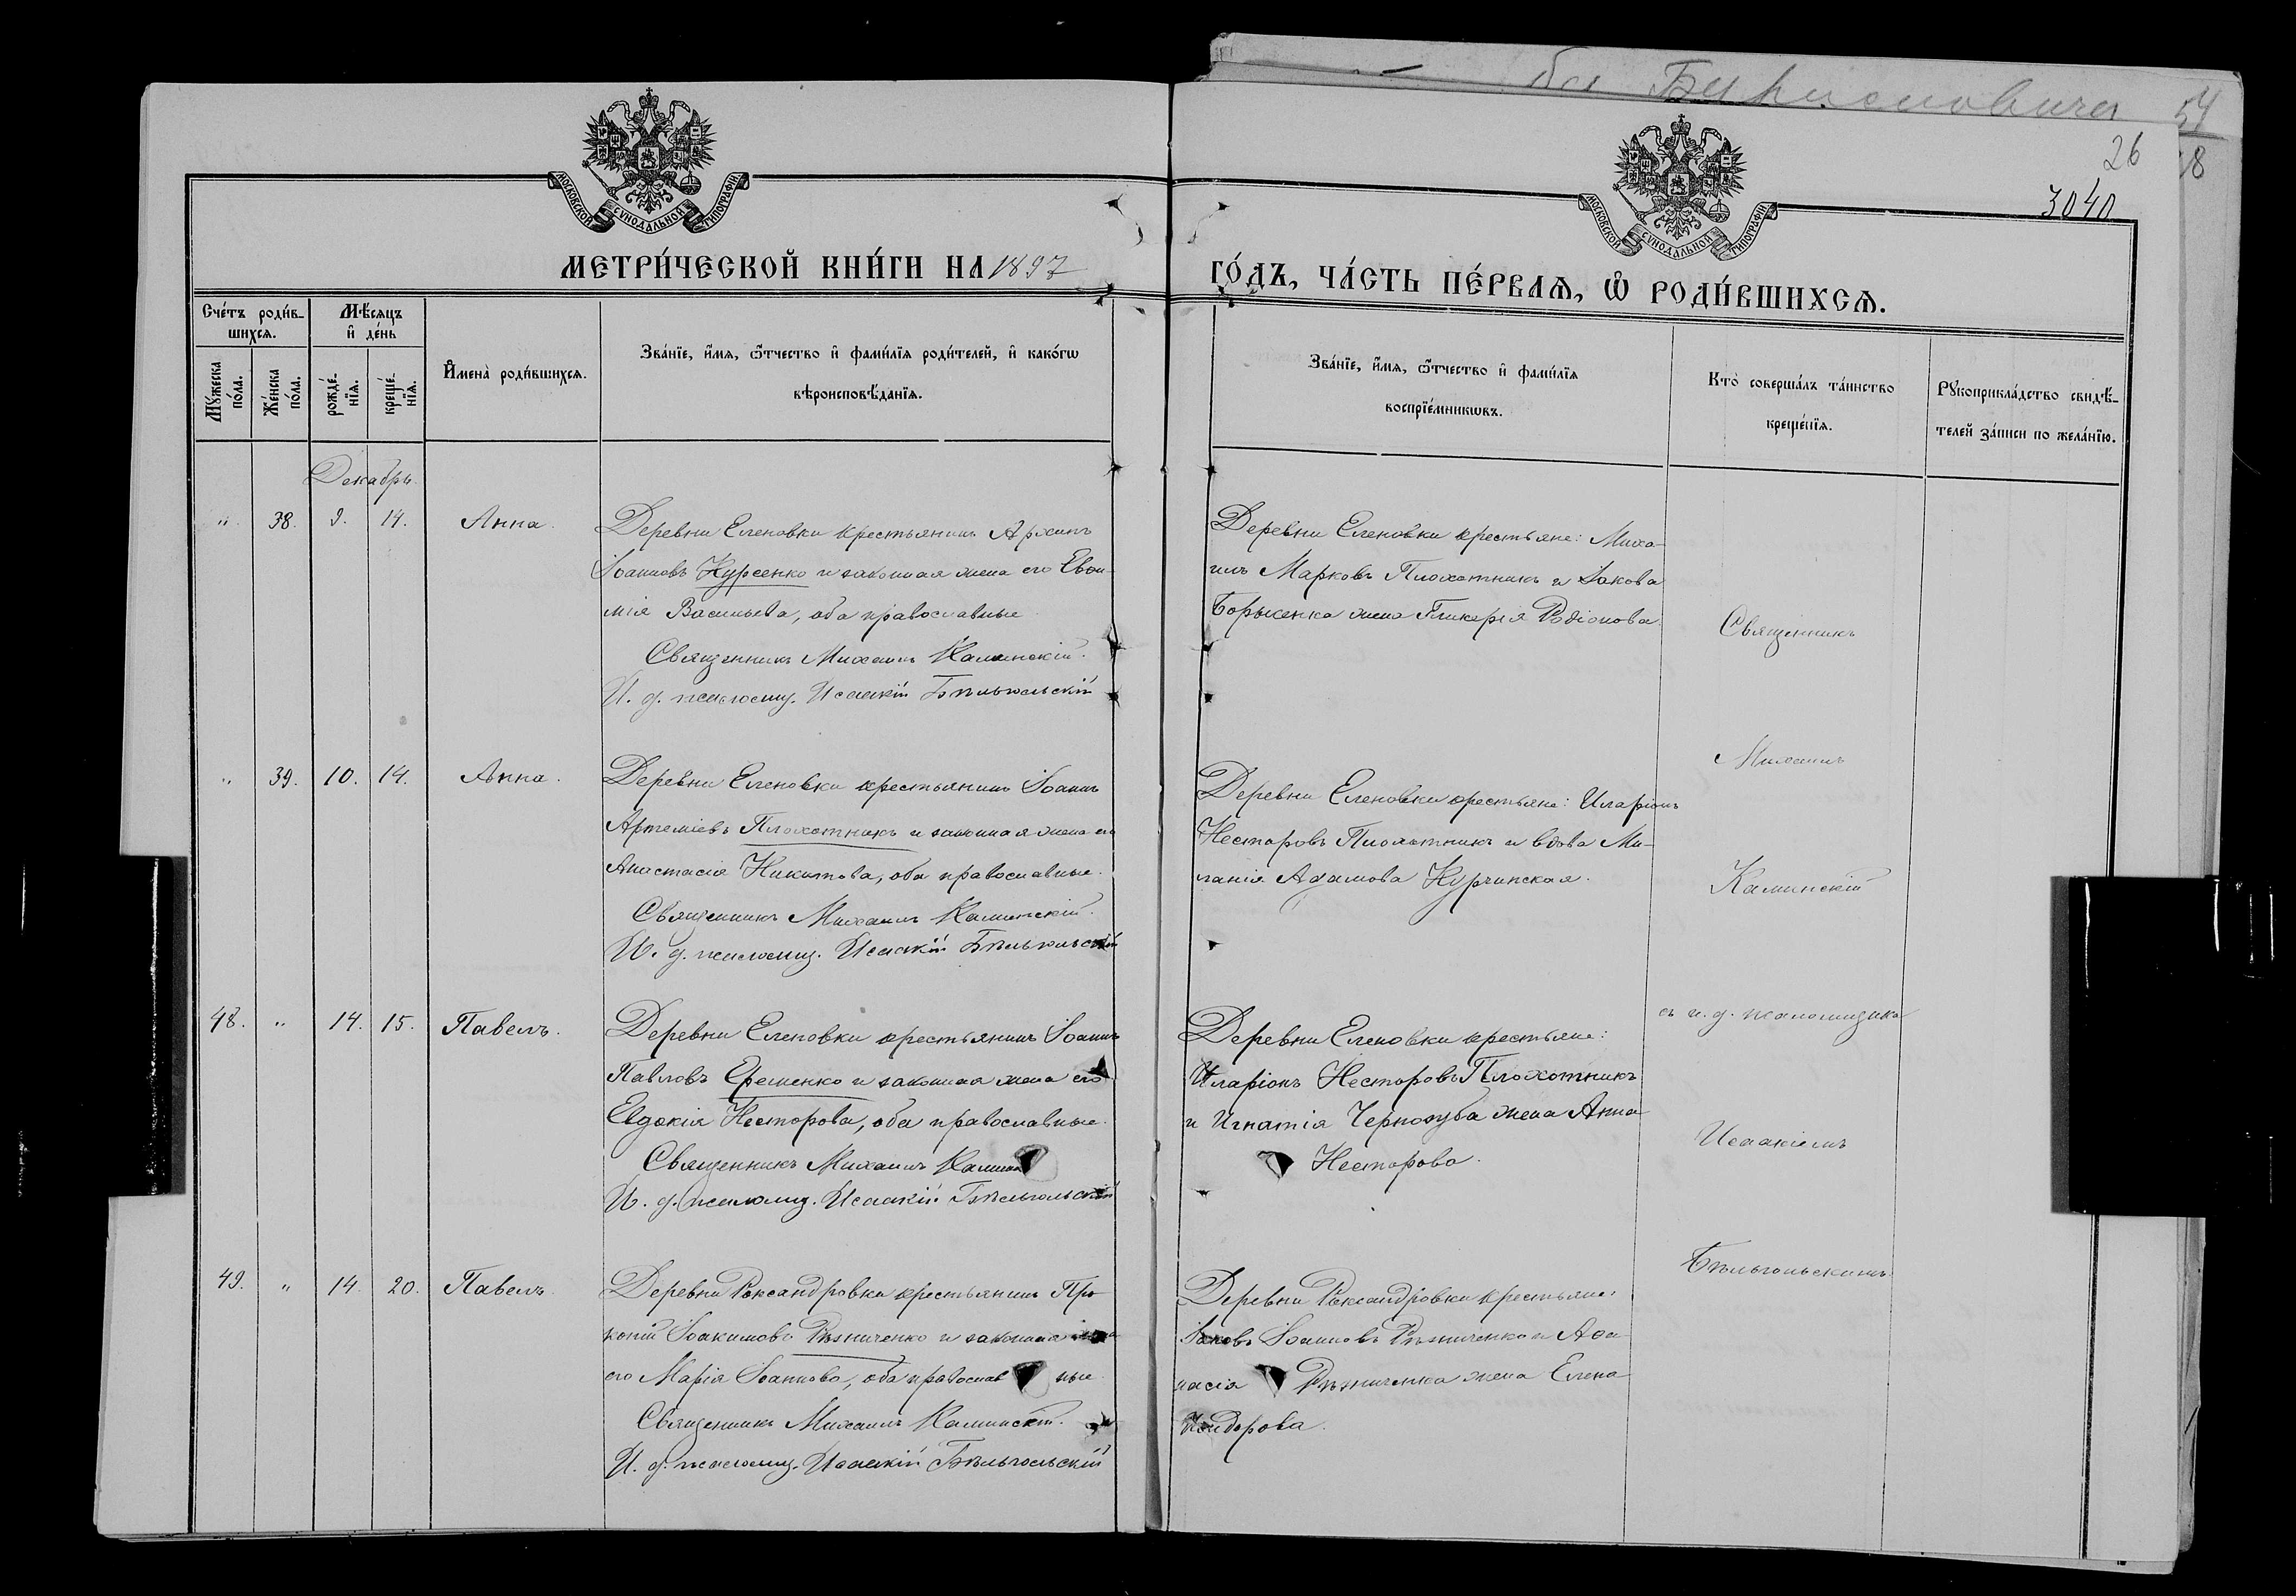 26
3040
МОСКОВСКОЙ СѴНОДАЛЬНОЙ ТИПОГРАФІИ.
МОСКОВСКОЙ СѴНОДАЛЬНОЙ ТИПОГРАФІИ.
МЕТРИ́ЧЕСКОЙ КНИ́ГИ НА 1897
ГО́ДЪ, ЧА́СТЬ ПЕ́РВАѦ, Ѡ҆ РОДИ́ВШИХСѦ.
Сче́тъ роди́в-
шихсѧ.
Мѣ́сяцъ
и҆ де́нь
Мꙋ́жеска
по́ла.
Же́нска
по́ла.
рожде́-
нїѧ.
креще́-
нїѧ.
И҆мена̀ роди́вшихсѧ.
Зва́нїе, и҆́мѧ, ѻ҆́тчество и҆ фами́лїѧ роди́телей, и҆ како́гѡ
вѣроисповѣ́данїѧ.
Зва́нїе, и҆́мѧ, ѻ҆́тчество и҆ фами́лїѧ
воспрїе́мникѡвъ.
Кто̀ соверша́лъ та́инство
креще́нїѧ.
Рꙋкоприкла́дство свидѣ́-
телей за́писи по жела́нїю.
Декабрь
" 38. 9. 14. Анна.
Деревни Еленовки крестьянинъ Архипъ
Іоанновъ Курсенко и законная жена его Евѳи-
мія Васильева, оба православные
Священникъ Михаилъ Калинскій.
И. д. псаломщ. Исаакій Бѣльгольскій
Деревни Еленовки крестьяне: Миха-
илъ Марковъ Плохотникъ и Іакова
Борысенка жена Гликерія Родіонова.
" 39. 10. 14. Анна.
Деревни Еленовки крестьянинъ Іоаннъ
Артеміевъ Плохотникъ и законная жена его
Анастасія Никитова, оба православные.
Священникъ Михаилъ Калинскій.
И. д. псаломщ. Исаакій Бѣльгольскій
Деревни Еленовки крестьяне: Иларіонъ
Несторовъ Плохотникъ и вдова Ми-
ланія Адамова Курчинская.
48. " 14. 15. Павелъ.
Деревни Еленовки крестьянинъ Іоаннъ
Павловъ Еременко и законная жена его
Евдокія Несторова, оба православные.
Священникъ Михаилъ Калин
И. д. псаломщ. Исаакій Бѣльгольскій
Деревни Еленовки крестьяне:
Иларіонъ Несторовъ Плохотникъ
и Игнатія Чернозуба жена Анна
Несторова.
49. " 14 20. Павелъ.
Деревни Роксандровки крестьянинъ Про-
копій Іоакимовъ Рѣзниченко и законная жена
его Марія Іоаннова, оба православные
Священникъ Михаилъ Калинскій.
И. д. псаломщ. Исаакій Бѣльгольскій
Деревни Роксандровки крестьяне:
Іаковъ Іоанновъ Рѣзниченко и Аѳа-
насія Рѣзниченка жена Елена
Исидорова.
Священникъ
Михаилъ
Калинскій
съ и. д. псаломщика
Исаакіемъ
Бѣльгольскимъ.